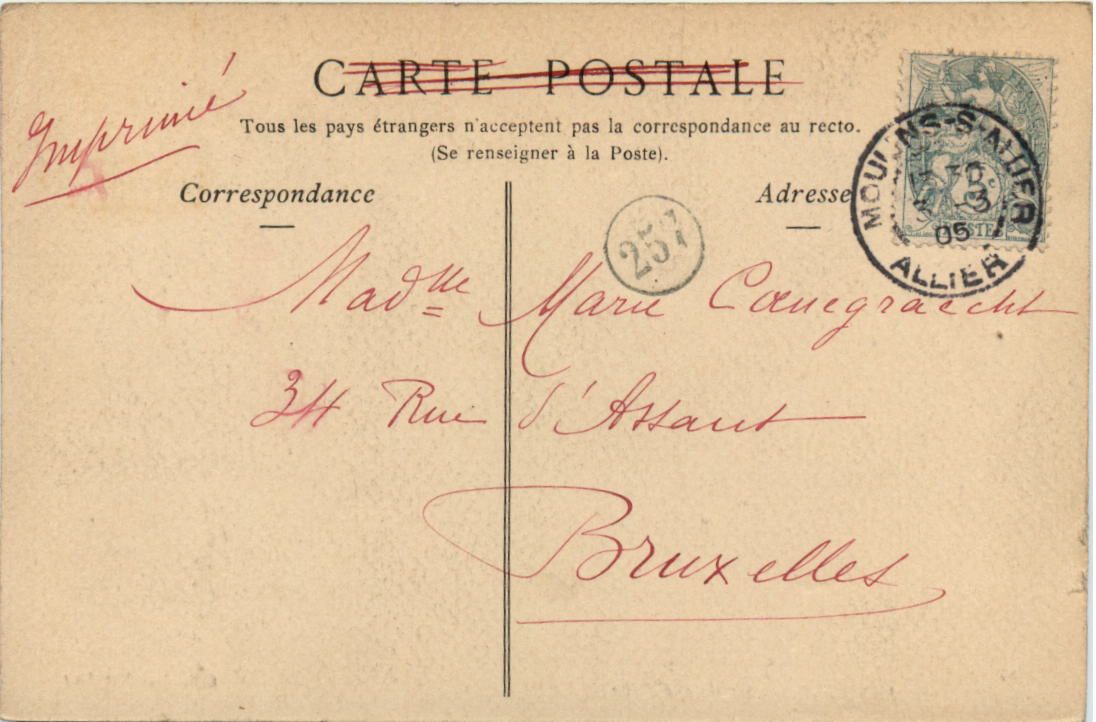 CARTE POSTALE
Imprimé
Tous les pays étrangers n'acceptent pas la correspondance au recto.
(Se renseigner à la Poste).
Correspondance
Adresse
257
MOULINS-S-ALLIER
30
-3
05
ALLIER
POSTES
Madlle Marie Coenegracht
34 Rue d'Assaut
Bruxelles